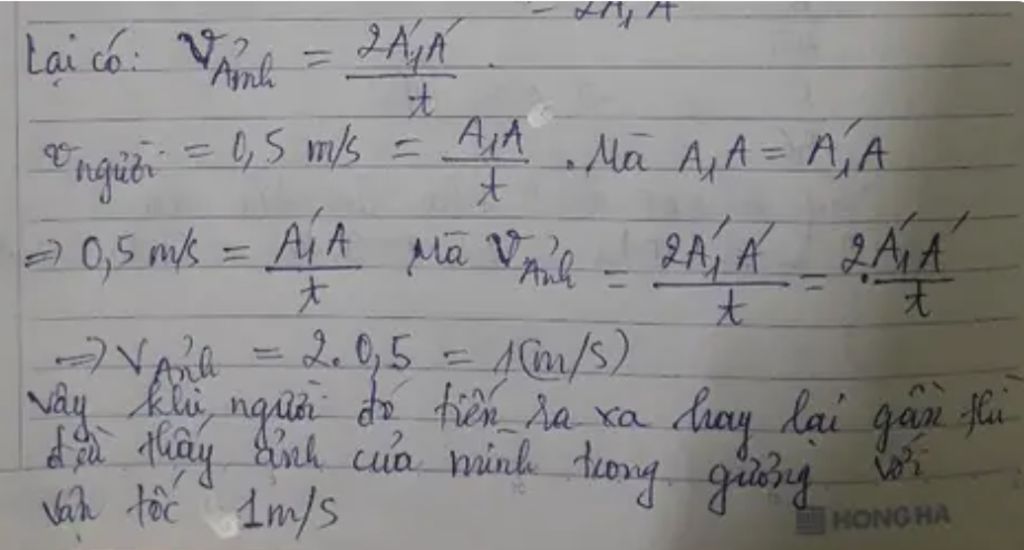 = 2A₁'A'
Lại có: V_Ảnh = 2A₁'A' / t .
v_người = 0,5 m/s = A₁A / t . Mà A₁A = A₁'A
=> 0,5 m/s = A₁'A / t Mà V_Ảnh = 2A₁'A' / t = 2. A₁'A' / t
=> V_Ảnh = 2.0,5 = 1(m/s)
vậy khi người đó tiến ra xa hay lại gần thì
đều thấy ảnh của mình trong gương với
vận tốc 1m/s
HONG HA